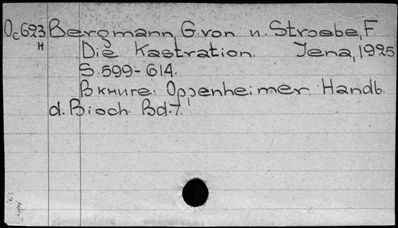 Oc623 Bergmann, G. von u. Stroebe, F.
H Die Kastration. Jena, 1925
S. 599-614.
В книге: Oppenheimer. Handb.
d. Bioch. Bd. 7.